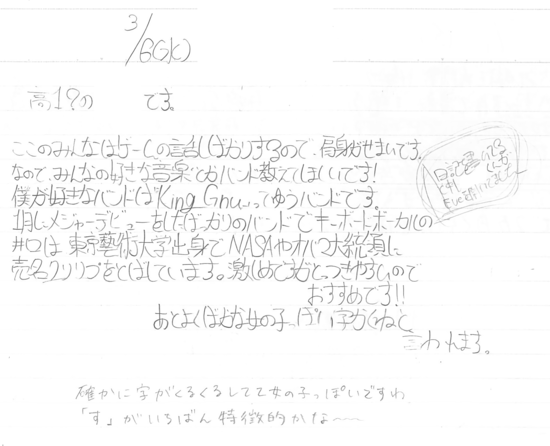 3/6(水)
高1?の です。
ここのみんなはゲームの話しばかりするので、肩身がせまいです。
なので、みんなの好きな音楽とかバンド教えてほしいです!
僕が好きなバンドは"King Gnu"ってゆうバンドです。
1月にメジャーデビューをしたばっかりのバンドでキーボードボーカルの
井口は東京藝術大学出身でNASAやオバマ大統領に
売名クソリプをとばしています。激しめですがとっつきやすいので
おすすめです!!
あとよくばせな女の子っぽい字かくねと
言われます。
日記書いてる
確かに字がくるくるしてて女の子っぽいですね
「す」がいちばん特徴的かな〜〜